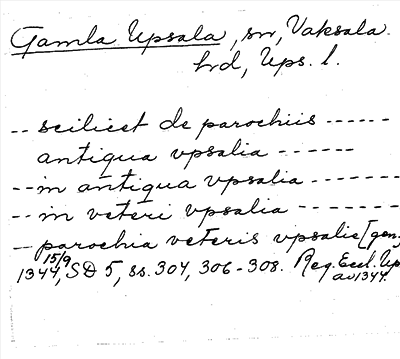 Gamla Upsala, sn, Vaksala
hd, Ups. l.
-- scilicet de parochiis ------
antiqua vpsalia ------
-- in antiqua vpsalia -------
-- in veteri vpsalia -------
-- parochia veteris vpsalie [gen.
15/9
1344, SD 5, ss. 304, 306-308. Reg. Eccl. Up
av 1344.